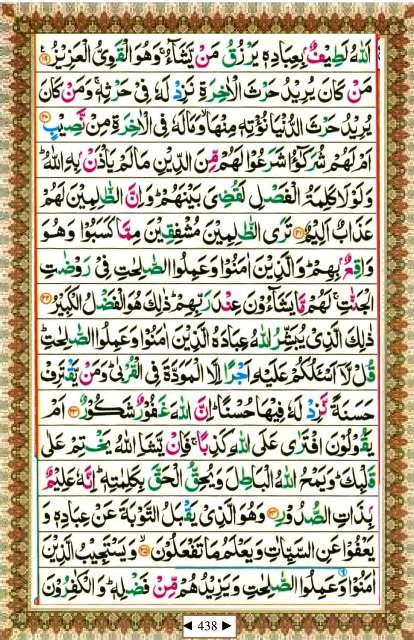 اَللّٰهُ لَطِيْفٌۢ بِعِبَادِهٖ يَرْزُقُ مَنْ يَّشَآءُ ۚ وَهُوَ الْقَوِيُّ الْعَزِيْزُ ۝۱۹
مَنْ كَانَ يُرِيْدُ حَرْثَ الْاٰخِرَةِ نَزِدْ لَهٗ فِيْ حَرْثِهٖ ۚ وَمَنْ كَانَ
يُرِيْدُ حَرْثَ الدُّنْيَا نُؤْتِهٖ مِنْهَا ۙ وَمَا لَهٗ فِي الْاٰخِرَةِ مِنْ نَّصِيْبٍ ۝۲۰
اَمْ لَهُمْ شُرَكٰٓؤُا شَرَعُوْا لَهُمْ مِّنَ الدِّيْنِ مَا لَمْ يَاْذَنْۢ بِهِ اللّٰهُ ؕ
وَلَوْلَا كَلِمَةُ الْفَصْلِ لَقُضِيَ بَيْنَهُمْ ؕ وَاِنَّ الظّٰلِمِيْنَ لَهُمْ
عَذَابٌ اَلِيْمٌ ۝۲۱ تَرَى الظّٰلِمِيْنَ مُشْفِقِيْنَ مِمَّا كَسَبُوْا وَهُوَ
وَاقِعٌۢ بِهِمْ ؕ وَالَّذِيْنَ اٰمَنُوْا وَعَمِلُوا الصّٰلِحٰتِ فِيْ رَوْضٰتِ
الْجَنّٰتِ ۚ لَهُمْ مَّا يَشَآءُوْنَ عِنْدَ رَبِّهِمْ ؕ ذٰلِكَ هُوَ الْفَضْلُ الْكَبِيْرُ ۝۲۲
ذٰلِكَ الَّذِيْ يُبَشِّرُ اللّٰهُ عِبَادَهُ الَّذِيْنَ اٰمَنُوْا وَعَمِلُوا الصّٰلِحٰتِ ؕ
قُلْ لَّاۤ اَسْـَٔلُكُمْ عَلَيْهِ اَجْرًا اِلَّا الْمَوَدَّةَ فِي الْقُرْبٰى ؕ وَمَنْ يَّقْتَرِفْ
حَسَنَةً نَّزِدْ لَهٗ فِيْهَا حُسْنًا ؕ اِنَّ اللّٰهَ غَفُوْرٌ شَكُوْرٌ ۝۲۳ اَمْ
يَقُوْلُوْنَ افْتَرٰى عَلَى اللّٰهِ كَذِبًا ۚ فَاِنْ يَّشَاِ اللّٰهُ يَخْتِمْ عَلٰى
قَلْبِكَ ؕ وَيَمْحُ اللّٰهُ الْبَاطِلَ وَيُحِقُّ الْحَقَّ بِكَلِمٰتِهٖ ؕ اِنَّهٗ عَلِيْمٌۢ
بِذَاتِ الصُّدُوْرِ ۝۲۴ وَهُوَ الَّذِيْ يَقْبَلُ التَّوْبَةَ عَنْ عِبَادِهٖ وَ
يَعْفُوْا عَنِ السَّيِّاٰتِ وَيَعْلَمُ مَا تَفْعَلُوْنَ ۝۲۵ وَيَسْتَجِيْبُ الَّذِيْنَ
اٰمَنُوْا وَعَمِلُوا الصّٰلِحٰتِ وَيَزِيْدُهُمْ مِّنْ فَضْلِهٖ ؕ وَالْكٰفِرُوْنَ
◄ 438 ►